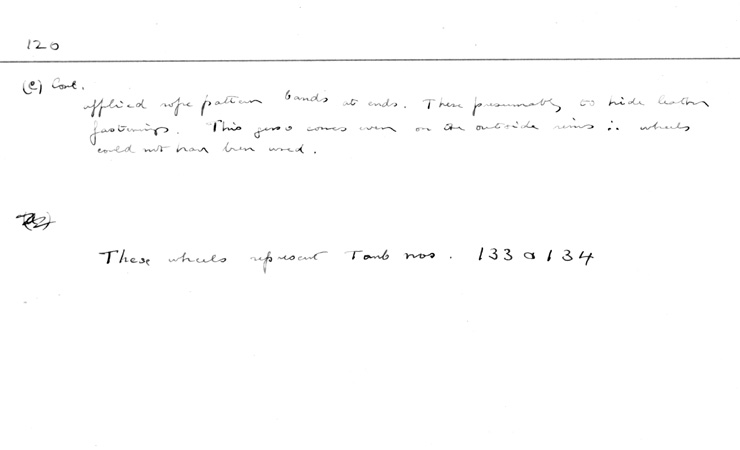 120
(e) Cont.
applied rope pattern bands at ends. These presumably to hide leather
fastenings. This gesso comes even on the outside rims ∴ wheels
could not have been used.
These wheels represent Tomb nos. 133 & 134